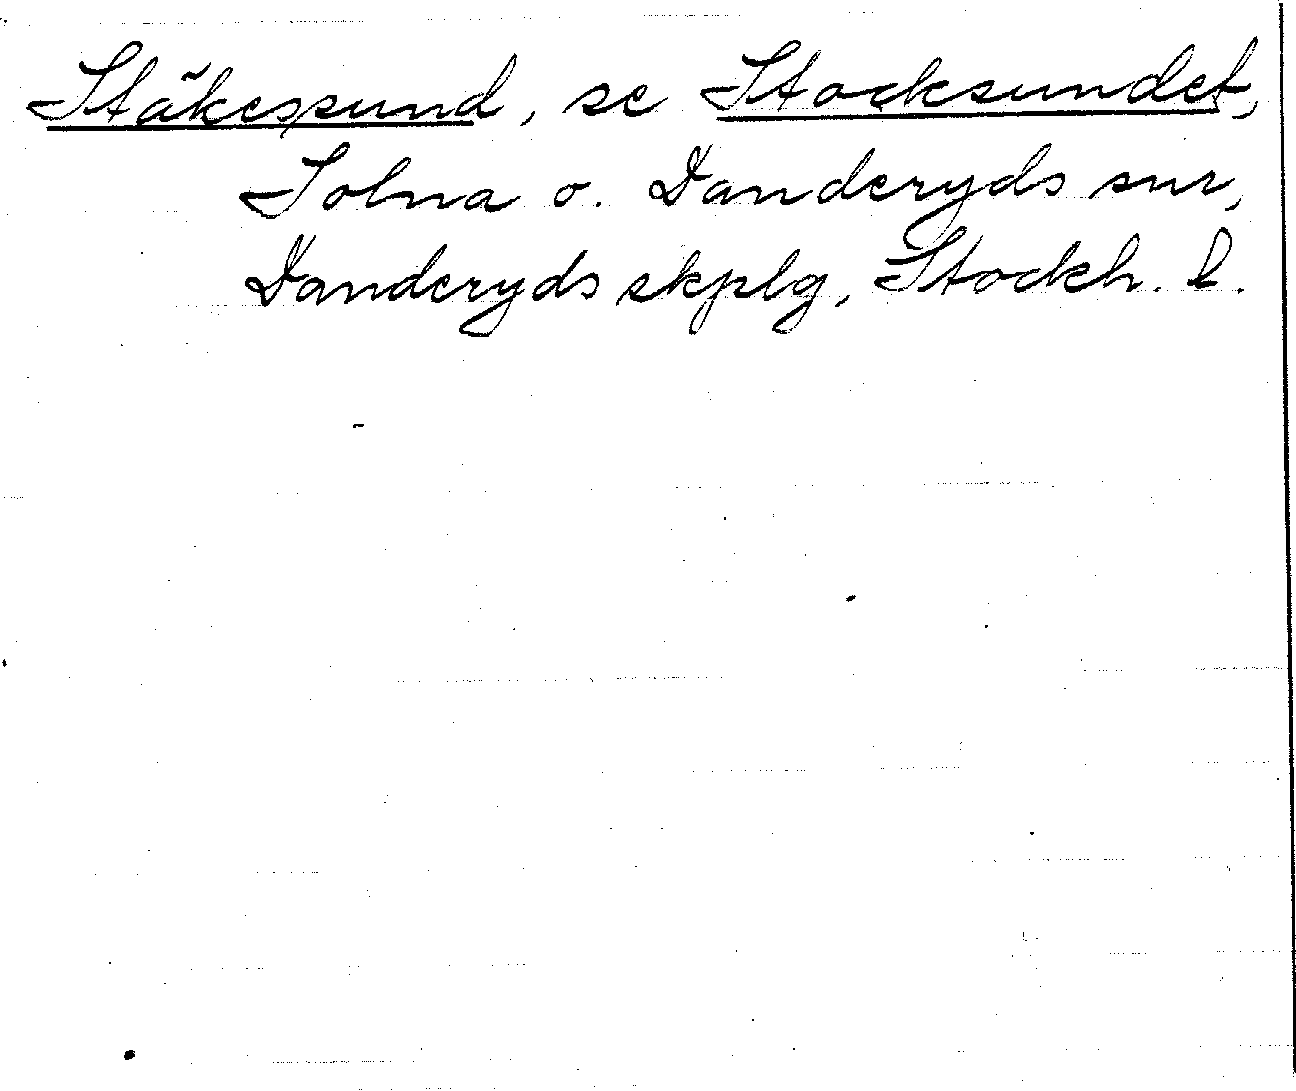 Stäkessund, se Stocksundet,
Solna o. Danderyds snr,
Danderyds skplg, Stockh. l.